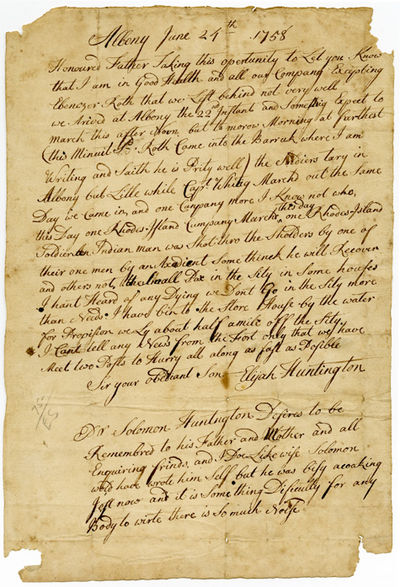 Albony June 24th 1758
Honoured Father Taking this opertunity to Let you Know
that I am in Good Health and all our Company Excepting
Ebenezer Roth that we Left behind not very well
we arived at Albony the 22nd Instant and Some Expect to
March this after Noon but to morow Morning at furthest
(this Minuit Roth Came into the Barrak where I am
Writing and Saith he is Prity well) the Soldiers tary in
Albony but Litle while Capt Whiting March out the Same
Day we Came in, and one Company more I Know not who,
this Day one Rhodisland Cumpany Marcht one Rhodisland this day
Soldier an Indian man was Shot thro the Sholders by one of
their one men by an Axedient Some think he will Recover
and others not, the Small Pox in the Sity in Some houses
I haint Heard of any Dying we Dont Go in the Sity more
than Needs I have bin to the Store House by the water
for Provision we Ly about half a mile off the Sity
I Cant tell any News from the Fort only that we have
Meet two Posts to Hurry all along as fast as Posible
Sir your obediant Son Elijah Huntington
Solomon Huntington Desires to be
Remembred to his Father and Mother and all
Enquiring frinds, and I Doe Likewise Solomon
wold have wrote him Self but he was besy acooking
Jest now and it is Some thing Dificully for any
Body to wirte there is so much Noise